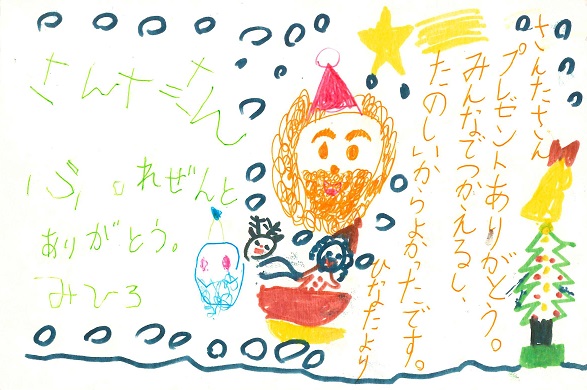 さんたさん
ぷ。れぜんと
ありがとう。
みひろ
さんたさん
プレゼントありがとう。
みんなでつかえるし、
たのしいからよかったです。
ひなたより